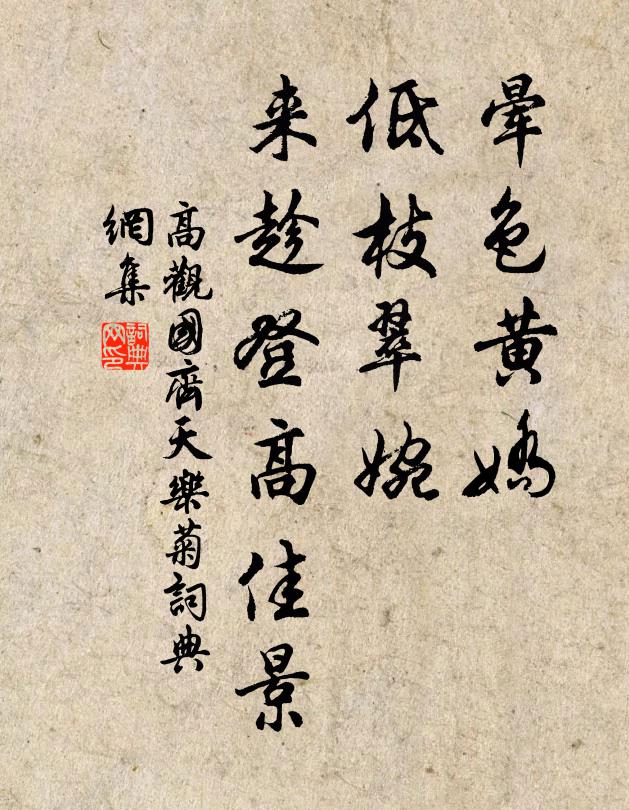 暈色黃嬌
低枝翠婉
来趁登高佳景
高觀國齊天樂菊詞典
網集
詞典網印